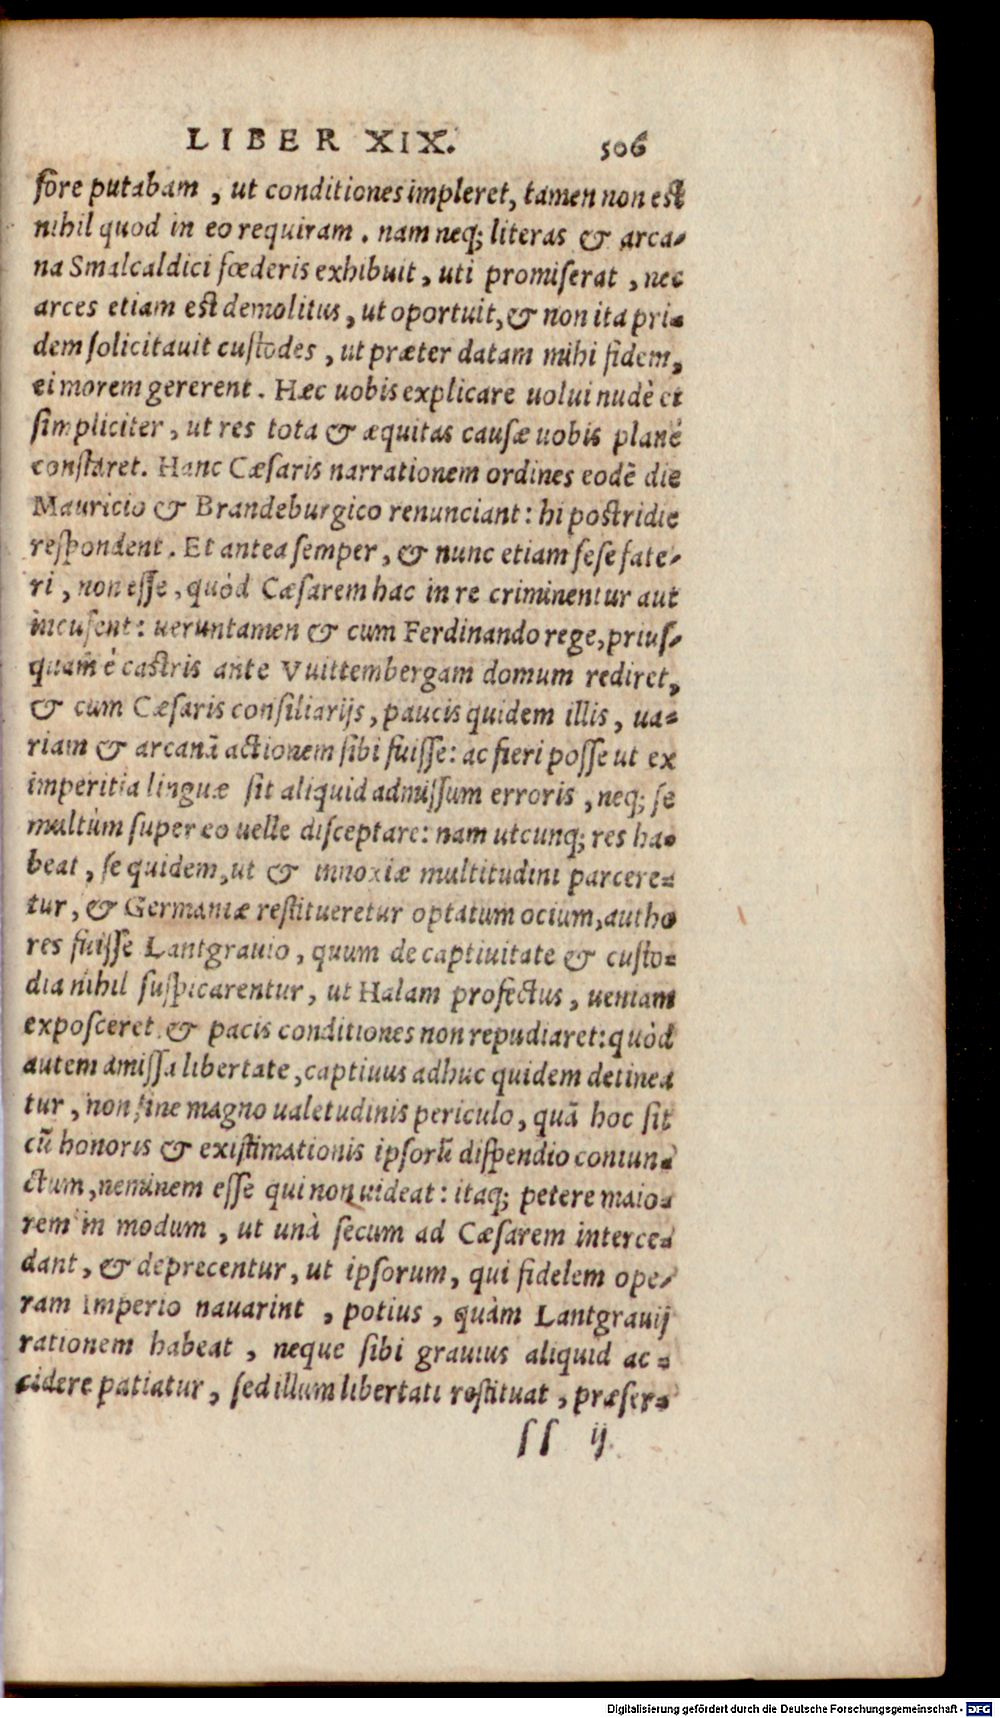 LIBER XIX. 506
fore putabam, ut conditiones impleret, tamen non est
nihil quod in eo requiram. nam neq; literas & arca-
na Smalcaldici fœderis exhibuit, uti promiserat, nec
arces etiam est demolitus, ut oportuit, & non ita pri-
dem solicitavit custodes, ut præter datam mihi fidem,
ei morem gererent. Hæc uobis explicare uolui nudè et
simpliciter, ut res tota & æquitas causæ uobis planè
constaret. Hanc Cæsaris narrationem ordines eodē die
Mauricio & Brandeburgico renunciant: hi postridie
respondent. Et antea semper, & nunc etiam sese fate-
ri, non esse, quòd Cæsarem hac in re criminentur aut
incusent: ueruntamen & cum Ferdinando rege, prius-
quam è castris ante Vuittembergam domum rediret,
& cum Cæsaris consiliarijs, paucis quidem illis, ua-
riam & arcanā actionem sibi fuisse: ac fieri posse ut ex
imperitia linguæ sit aliquid admissum erroris, neq; se
multùm super eo uelle disceptare: nam utcunq; res ha-
beat, se quidem, ut & innoxiæ multitudini parcere-
tur, & Germaniæ restitueretur optatum ocium, autho
res fuisse Lantgrauio, quum de captiuitate & custo-
dia nihil suspicarentur, ut Halam profectus, ueniam
exposceret & pacis conditiones non repudiaret: quòd
autem amissa libertate, captiuus adhuc quidem detinea
tur, non sine magno ualetudinis periculo, quā hoc sit
cū honoris & existimationis ipsorū dispendio coniun-
ctum, neminem esse qui non uideat: itaq; petere maio-
rem in modum, ut unà secum ad Cæsarem interce-
dant, & deprecentur, ut ipsorum, qui fidelem ope-
ram Imperio nauarint, potius, quàm Lantgrauij
rationem habeat, neque sibi grauius aliquid ac-
cidere patiatur, sed illum libertati restituat, præser-
ſſ ij
Digitalisierung gefördert durch die Deutsche Forschungsgemeinschaft - DFG